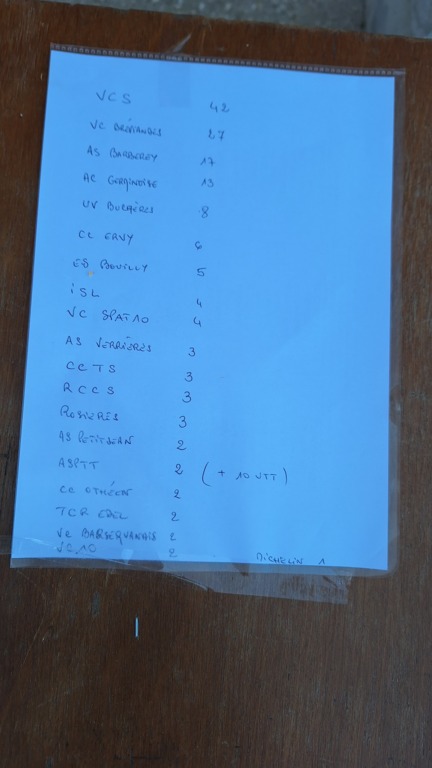 VCS 42
VC BRÉVIANDES 27
AS BARBEREY 17
AC GERMINOISE 13
UV BUCHÈRES 8
CC ERVY 6
ES BOUILLY 5
iSL 4
VC SPATAO 4
AS VERRIÈRES 3
CCTS 3
RCCS 3
ROSIERES 3
AS PETITJEAN 2
ASPTT 2 ( + 10 UTT )
CC OTHÉEN 2
TCR EDEL 2
VC BARSEQUANAIS 2
VC 10 2 MICHELIN 1